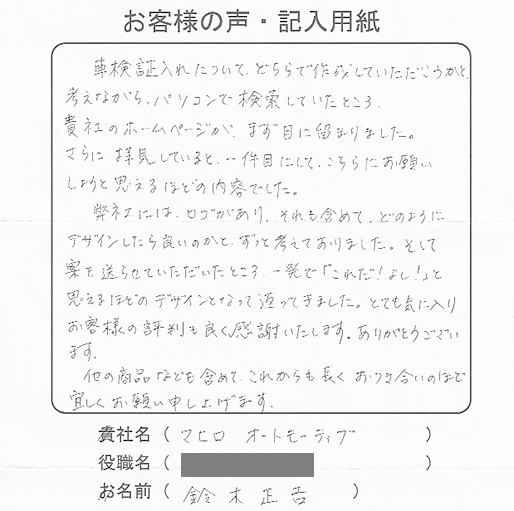 お客様の声・記入用紙
車検証入れについて、どちらで作成していただこうかと、
考えながら、パソコンで検索していたところ、
貴社のホームページが、まず目に留まりました。
さらに拝見していると、一件目にして、こちらにお願い
しようと思えるほどの内容でした。
弊社には、ロゴがあり、それも含めて、どのように
デザインしたら良いのかと、ずっと考えておりました。そして
案を送らせていただいたところ、一発で「これだ!よし!」と
思えるほどのデザインとなって返ってきました。とても気に入り
お客様の評判も良く感謝いたします。ありがとうござい
ます。
他の商品なども含めて、これからも長くおつき合いのほど
宜しくお願い申し上げます。
貴社名(マヒロ オートモーティブ)
役職名( )
お名前(鈴木正吾)